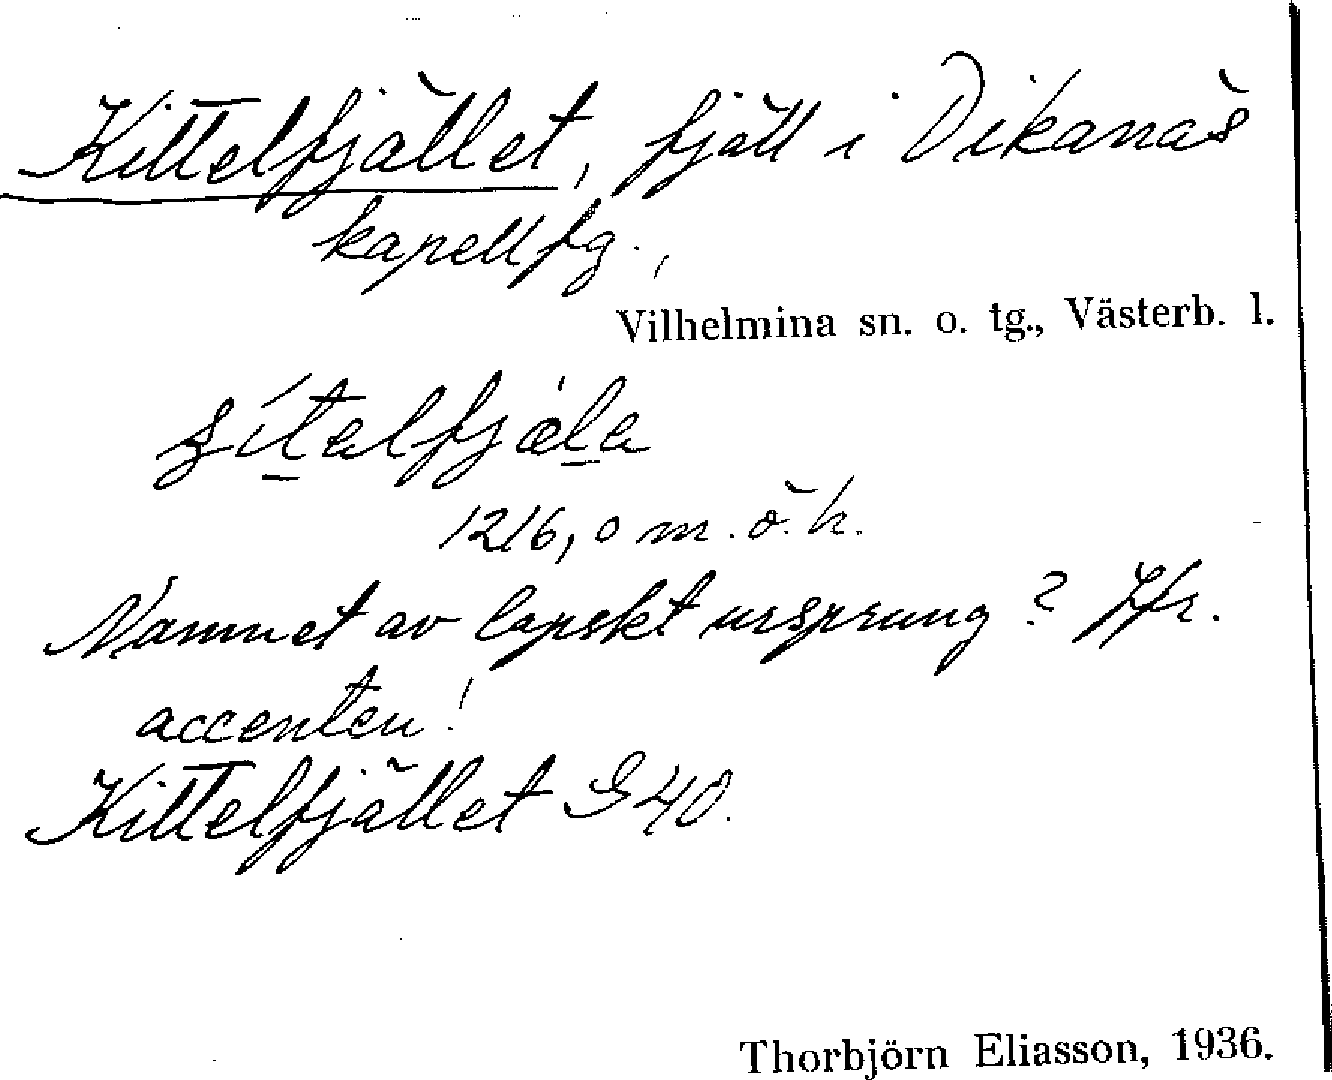 Kittelfjället, fjäll i Dikanäs
kapellfg.,
Vilhelmina sn. o. tg., Västerb. l.
1216,0 m. ö. h.
Namnet av lapskt ursprung? Jfr.
accenten!
Kittelfjället G 40.
Thorbjörn Eliasson, 1936.